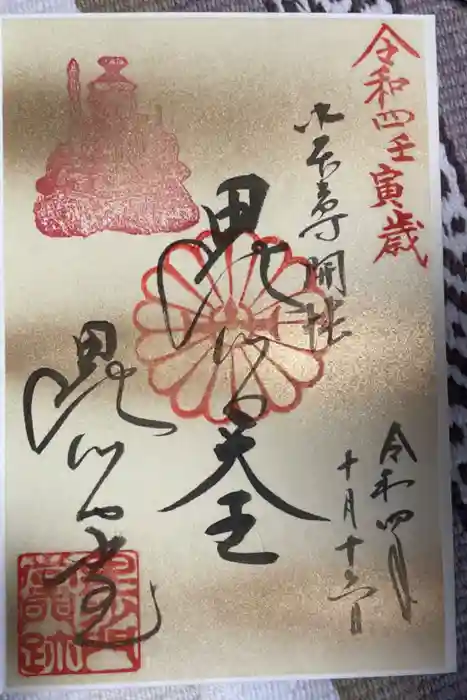 令和四壬寅歳
御本尊開扉
毘沙門天王
令和四年
十月十六日
毘沙門堂